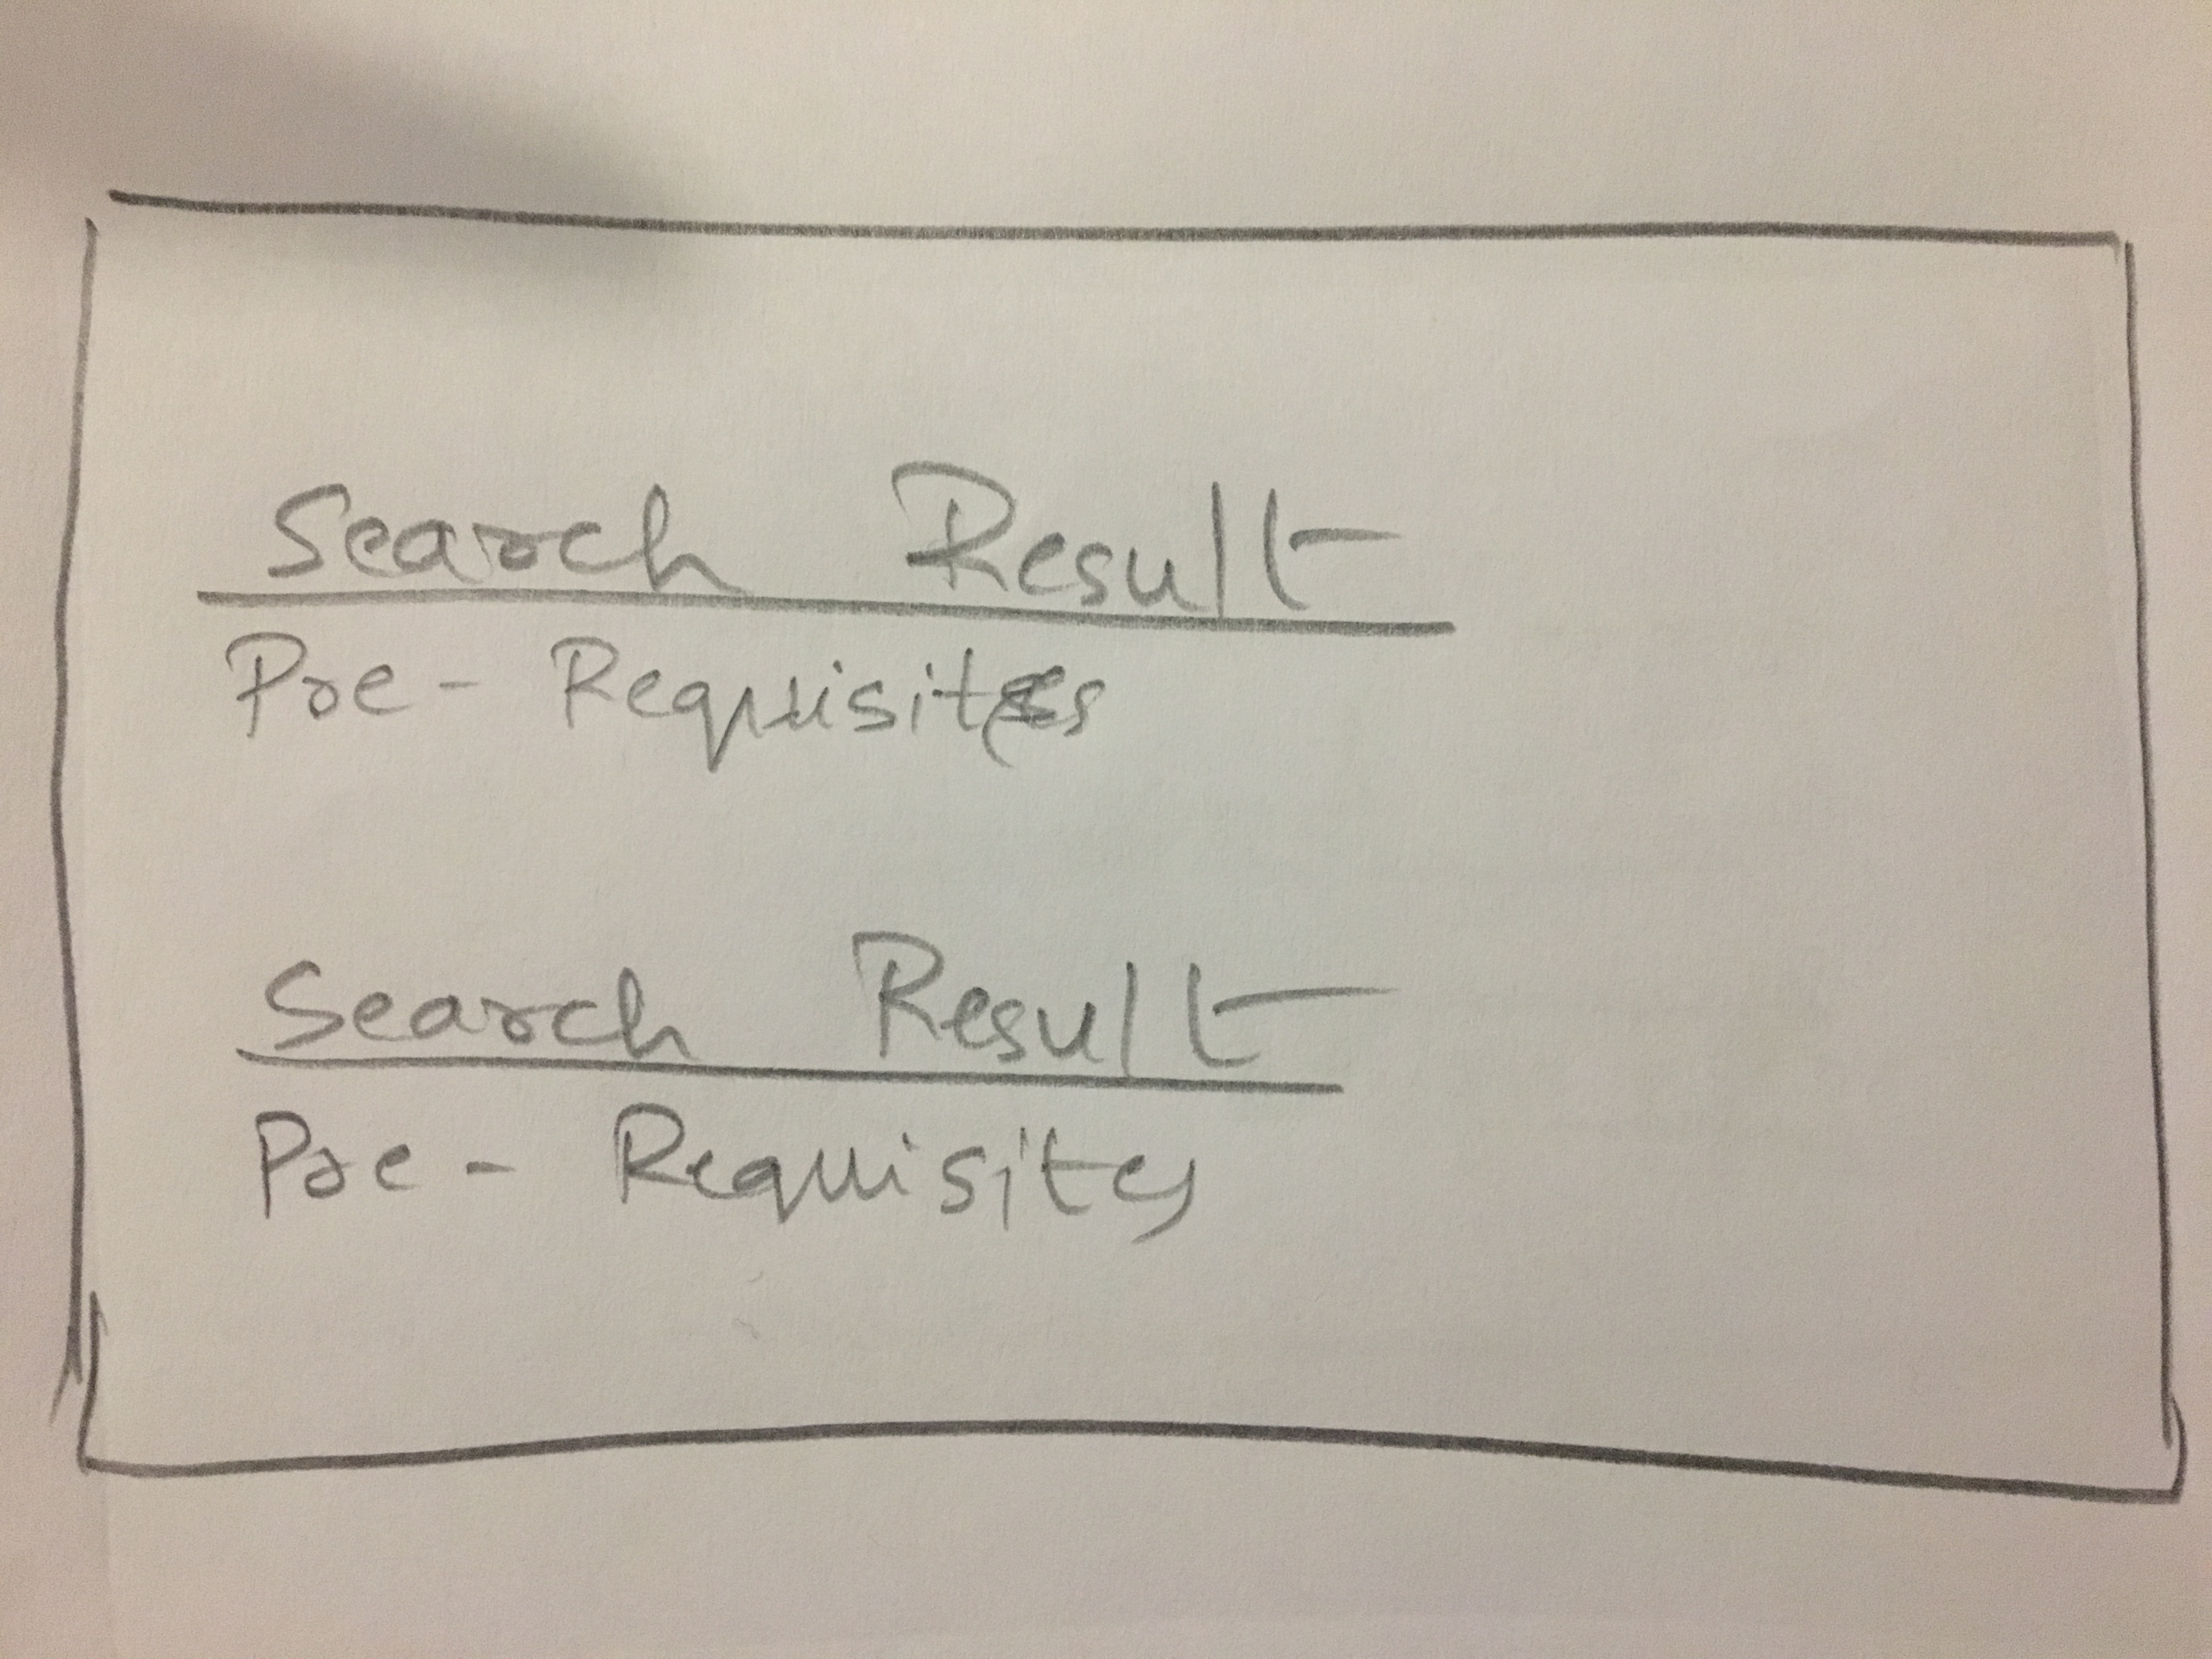 Search Result
Pre - Requisites
Search Result
Pre - Requisity